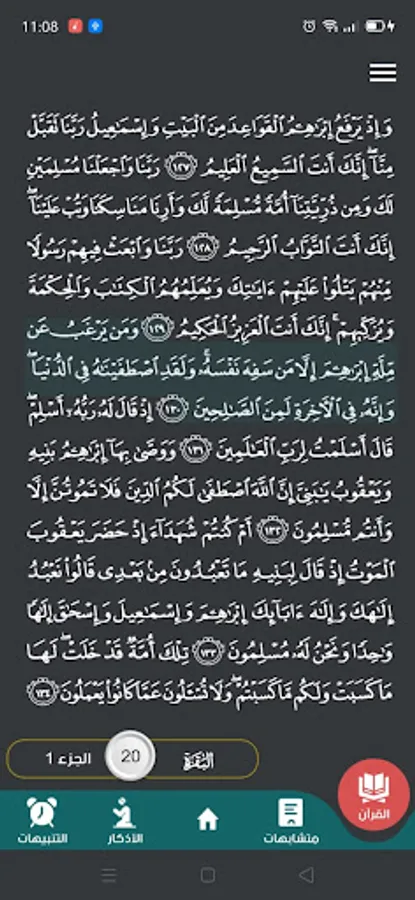 11:08
وَإِذْ يَرْفَعُ إِبْرَٰهِـۧمُ ٱلْقَوَاعِدَ مِنَ ٱلْبَيْتِ وَإِسْمَٰعِيلُ رَبَّنَا تَقَبَّلْ
مِنَّآ ۖ إِنَّكَ أَنتَ ٱلسَّمِيعُ ٱلْعَلِيمُ ١٢٧ رَبَّنَا وَٱجْعَلْنَا مُسْلِمَيْنِ
لَكَ وَمِن ذُرِّيَّتِنَآ أُمَّةً مُّسْلِمَةً لَّكَ وَأَرِنَا مَنَاسِكَنَا وَتُبْ عَلَيْنَآ ۖ
إِنَّكَ أَنتَ ٱلتَّوَّابُ ٱلرَّحِيمُ ١٢٨ رَبَّنَا وَٱبْعَثْ فِيهِمْ رَسُولًا
مِّنْهُمْ يَتْلُوا۟ عَلَيْهِمْ ءَايَٰتِكَ وَيُعَلِّمُهُمُ ٱلْكِتَٰبَ وَٱلْحِكْمَةَ
وَيُزَكِّيهِمْ ۚ إِنَّكَ أَنتَ ٱلْعَزِيزُ ٱلْحَكِيمُ ١٢٩ وَمَن يَرْغَبُ عَن
مِّلَّةِ إِبْرَٰهِـۧمَ إِلَّا مَن سَفِهَ نَفْسَهُۥ ۚ وَلَقَدِ ٱصْطَفَيْنَٰهُ فِى ٱلدُّنْيَا ۖ
وَإِنَّهُۥ فِى ٱلْءَاخِرَةِ لَمِنَ ٱلصَّٰلِحِينَ ١٣٠ إِذْ قَالَ لَهُۥ رَبُّهُۥٓ أَسْلِمْ ۖ
قَالَ أَسْلَمْتُ لِرَبِّ ٱلْعَٰلَمِينَ ١٣١ وَوَصَّىٰ بِهَآ إِبْرَٰهِـۧمُ بَنِيهِ
وَيَعْقُوبُ يَٰبَنِىَّ إِنَّ ٱللَّهَ ٱصْطَفَىٰ لَكُمُ ٱلدِّينَ فَلَا تَمُوتُنَّ إِلَّا
وَأَنتُم مُّسْلِمُونَ ١٣٢ أَمْ كُنتُمْ شُهَدَآءَ إِذْ حَضَرَ يَعْقُوبَ
ٱلْمَوْتُ إِذْ قَالَ لِبَنِيهِ مَا تَعْبُدُونَ مِنۢ بَعْدِى قَالُوا۟ نَعْبُدُ
إِلَٰهَكَ وَإِلَٰهَ ءَابَآئِكَ إِبْرَٰهِـۧمَ وَإِسْمَٰعِيلَ وَإِسْحَٰقَ إِلَٰهًا
وَٰحِدًا وَنَحْنُ لَهُۥ مُسْلِمُونَ ١٣٣ تِلْكَ أُمَّةٌ قَدْ خَلَتْ ۖ لَهَا
مَا كَسَبَتْ وَلَكُم مَّا كَسَبْتُمْ ۖ وَلَا تُسْـَٔلُونَ عَمَّا كَانُوا۟ يَعْمَلُونَ ١٣٤
البَقَرَة 20 الجزء 1
القرآن
متشابهات
الأذكار
التنبيهات